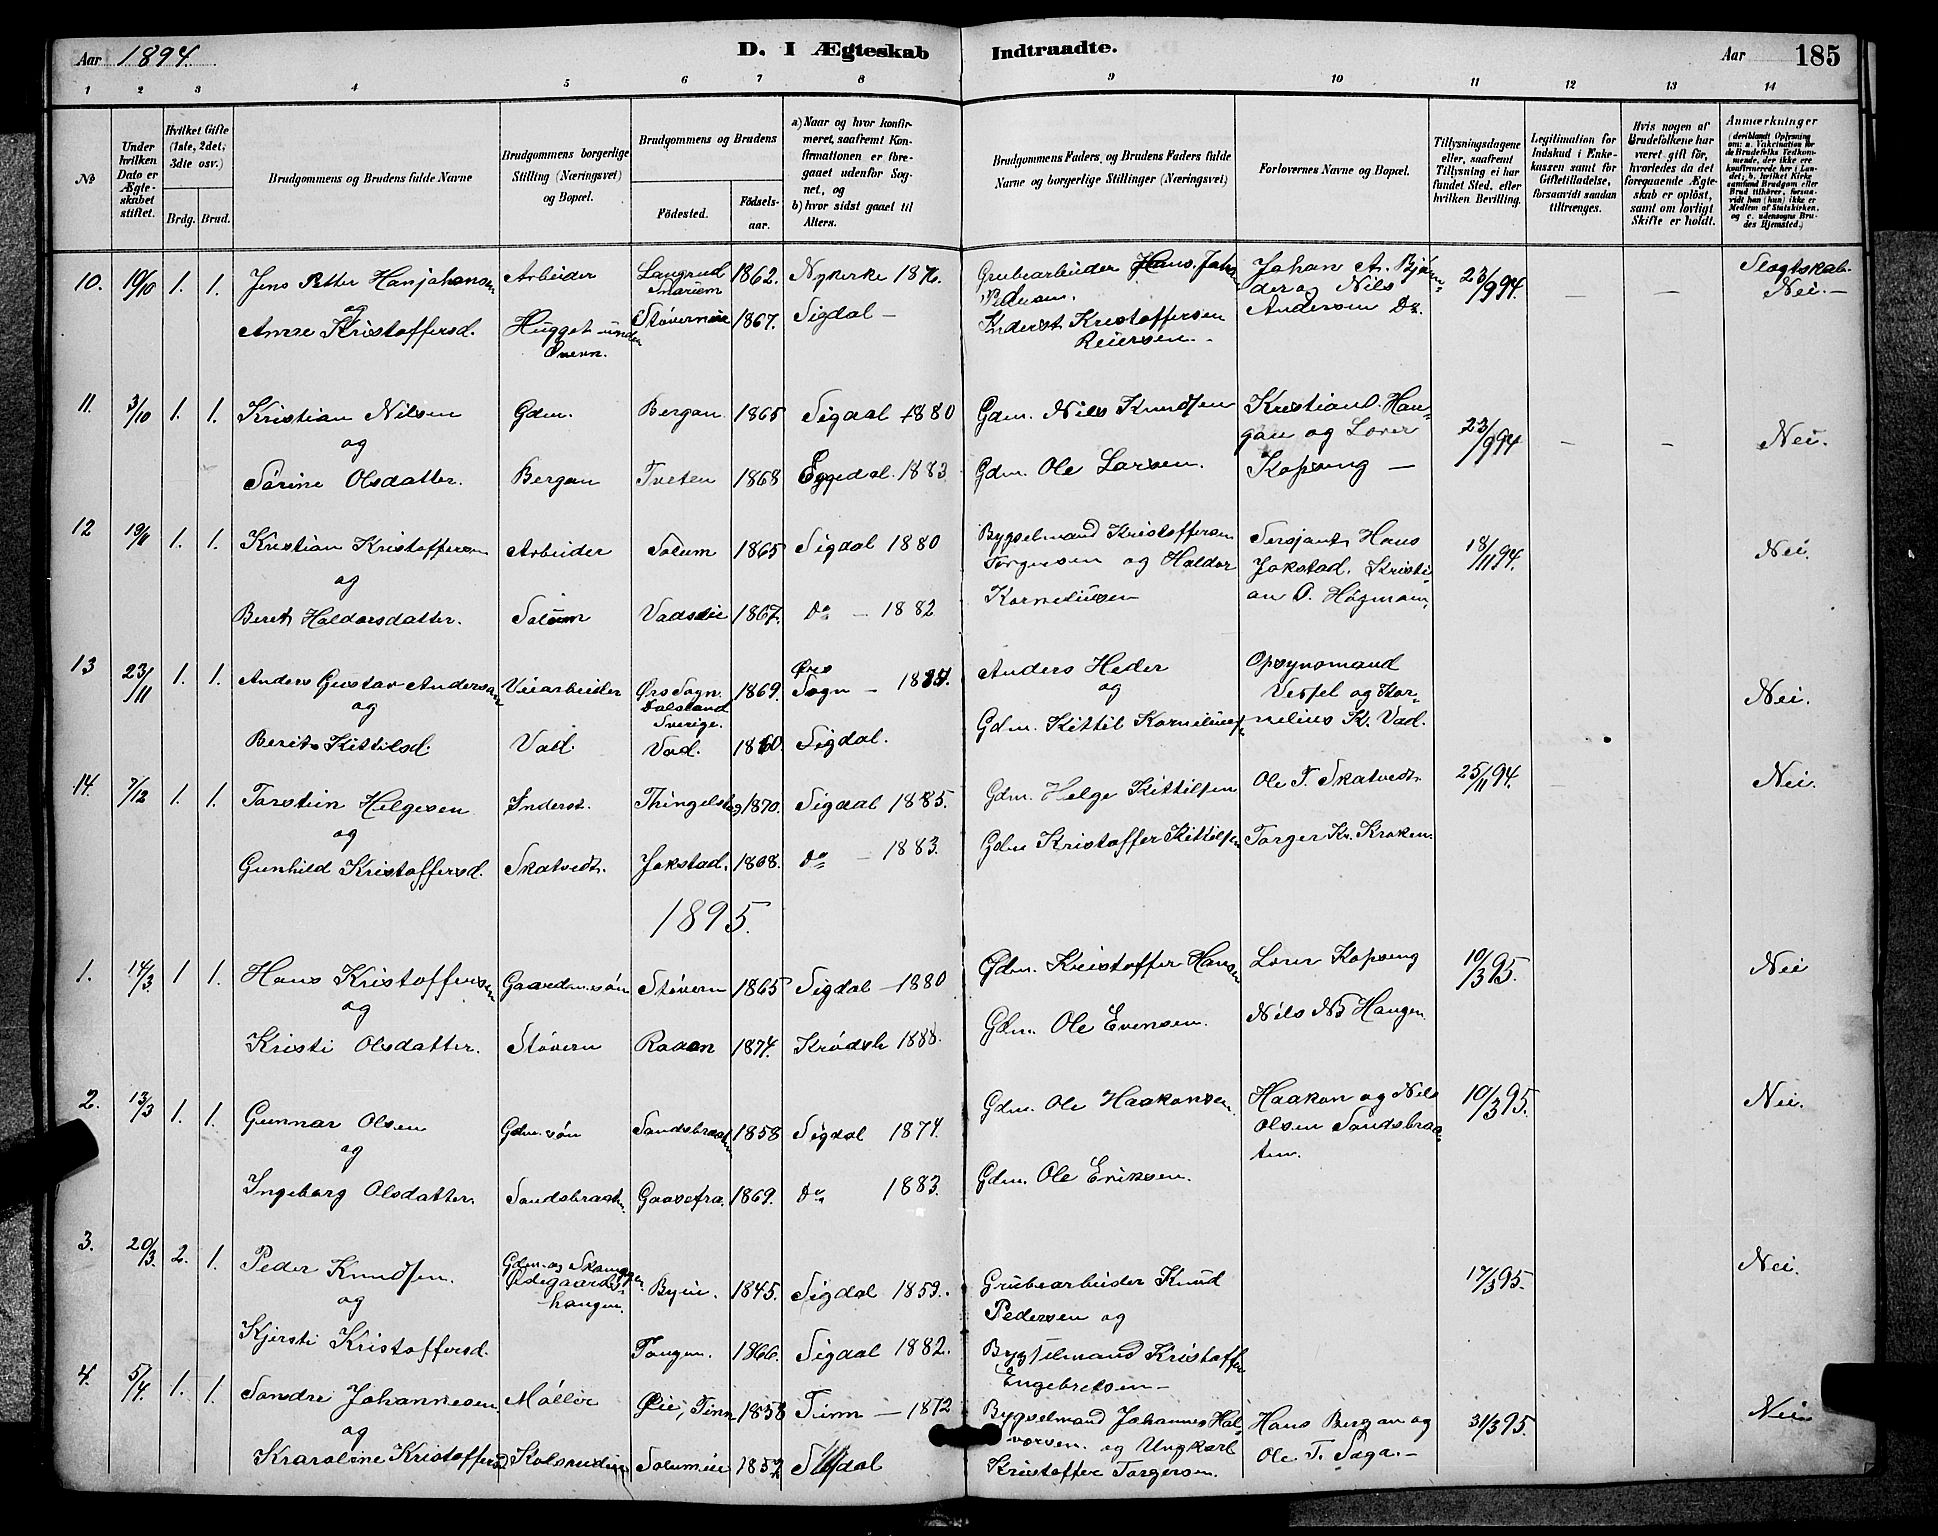 Aar 1894. D. I Ægteskab Indtraadte. Aar 185
1 2 3 4 5 6 7 8 9 10 11 12 13 14
№
Under hvilken Dato er Ægteskabet stiftet.
Hvilket Gifte (1ste, 2det; 3die osv.)
Brdg. Brud.
Brudgommens og Brudens fulde Navne
Brudgommens borgerlige Stilling (Næringsvei) og Bopæl.
Brudgommens og Brudens
Födested. Födsels-aar.
a) Naar og hvor konfirmeret, saafremt Konfirmationen er foregaaet udenfor Sognet, og
b) hvor sidst gaaet til Alters.
Brudgommens Faders, og Brudens Faders fulde Navne og borgerlige Stillinger (Næringsvei)
Forlovernes Navne og Bopæl.
Tillysningsdagene eller, saafremt Tillysning ei har fundet Sted, efter hvilken Bevilling.
Legitimation for Indskud i Enkekassen samt for Giftetilladelse, forsaavidt saadan tiltrænges.
Hvis nogen af Brudefolkene har været gift för, hvorledes da det foregaaende Ægteskab er oplöst, samt om lovligt Skifte er holdt.
Anmærkninger (deriblandt Oplysning om: a. Vakcination for de Brudefolks Vedkommende, der ikke ere konfirmerede her i Landet; b. hvilket Kirkesamfund Brudgom eller Brud tilhörer, forsaavidt han (hun) ikke er Medlem af Statskirken, og c. udensogns Brudes Hjemsted.)
10. 19/10 1. 1. Jens Petter Hansjohansen Arbeider Langrud Snarum 1862. Nykirke 1876. Grubearbeider Hans Johan Pedersen. Johan A. Bjørn- der og Nils Andersen Do. 23/9 94. — — Slægtskab. Nei. —
og
Anne Kristoffersd. Hugget under Øvern. Støverneie 1867. Sigdal — Inderst Kristoffersen Reiersen. -
11. 3/10 1. 1. Kristian Nilsen Gdm. Bergan 1865 Sigdal 1880 Gdm. Nils Knudsen Kristian O. Haugan og Lorer Kopseng — 23/9 94 — — Nei.
og
Sørine Olsdatter. Bergan Tveten 1868 Eggedal. 1883 Gdm. Ole Larsen.
12 19/11 1. 1. Kristian Kristoffersen Arbeider Solum 1865 Sigdal 1880 Bygselmand Kristoffersen Torgersen og Haldor Kornelinsen Sersjant Hans Jokstad. Kristian O. Høgmoen 18/11 94. Nei.
og
Beret Haldorsdatter. Solum Vadseie 1867. Do — 1882
13 23/11 1. 1. Anders Gustav Andersen Veiarbeider Ørs Sogn. Dalsland Sverige. 1869. Ørs Sogn — 1884. Anders Heder Opsynsmand Vessel og Kornelius K. Vad. Nei.
og
Berit Kittilsd. Vad. Vad. 1860 Sigdal. Gdm. Kittil Korneliuss.
14. 7/12 1. 1. Torstein Helgesen Inderst. Thingelstad 1870. Sigdal 1885. Gdm. Helge Kittilsen Ole T. Skatvedt. 25/11 94. Nei.
og
Gunhild Kristoffersd. Skatvedt. Jokstad. 1868. Do — 1883. Gdm Kristoffer Kittilsen Torger Kr. Kroken.
1895.
1. 14/3 1 1. Hans Kristoffersen Gaardm. søn Støvern 1865 Sigdal — 1880 Gdm. Kristoffer Hansen Lorer Kopseng 10/3 95. Nei
og
Kristi Olsdatter. Støvern Raaen 1874. Krødsh 1888. Gdm. Ole Evensen. Nils N. Haugen.
2. 13/3 1. 1. Gunnar Olsen Gdm. søn Sandsbraaten 1858 Sigdal 1874. Gdm. Ole Haakonsen. Haakon og Nils Olsen Sandsbraaten. 10/3 95. Nei.
og
Ingeborg Olsdatter. Sandsbraaten Gaasefra. 1869. Do 1883. Gdm. Ole Eriksen.
3. 20/3 2. 1. Peder Knudsen. Gdm. og Skomager Ødegaardshaugen. Byeie. 1845. Sigdal 1859. Grubearbeider Knud Pedersen og 17/3 95. Nei.
og
Kjersti Kristoffersd. Tangen. 1866. Sigdal 1882. Bygselmand Kristoffer Engebretsen —
4. 5/4 1. 1. Sondre Johannesen Møller Øie, Tinn 1858 Tinn — 1872 Bygselmand Johannes Halvorsen. og Ungkarl Kristoffer Torgersen. Hans Bergan og Ole T. Saga. — 31/3 95. Nei
og
Kraroline Kristoffersd. Kolsrudeie Solumeie 1852 Sigdal